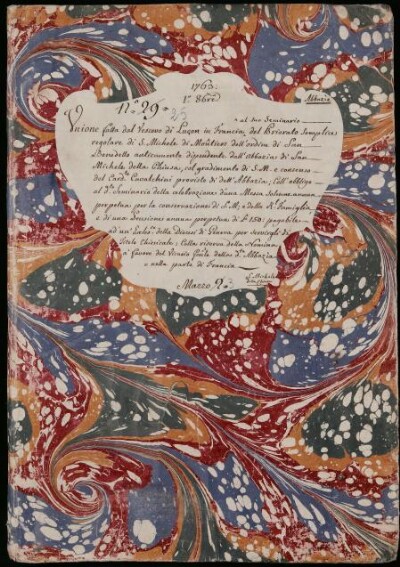 1763.
1.º 8bre
Abbazia
n.º 29. 25
al suo Seminario
Unione fatta dal Vescovo di Luçon in Francia, del Priorato semplice
regolare di S. Michele di dell'ordine di San
Benedetto anticamente dipendente dall'Abbazia di San
Michele della Chiusa, col gradimento di S. M. e consenso
del Card. Cavalchini provvisto di dett'Abbazia; Coll'obbligo
al d.º Seminario della celebrazione d'una Messa solenne annua
perpetua per la conservazione di S. M. e della R.l Famiglia,
e di una Pensione annua perpetua di £ 150: pagabile
ad un' della Diocesi di per servirgli di
Titolo Chiericale; Colla riserva della Nomina
a favore del Vicario Gnle dell'a d.ª Abbazia
nella parte di Francia
S. Michele
della Chiusa
Mazzo 2.º 3